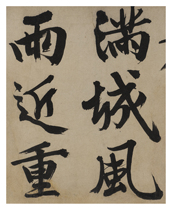 满城風
雨近重